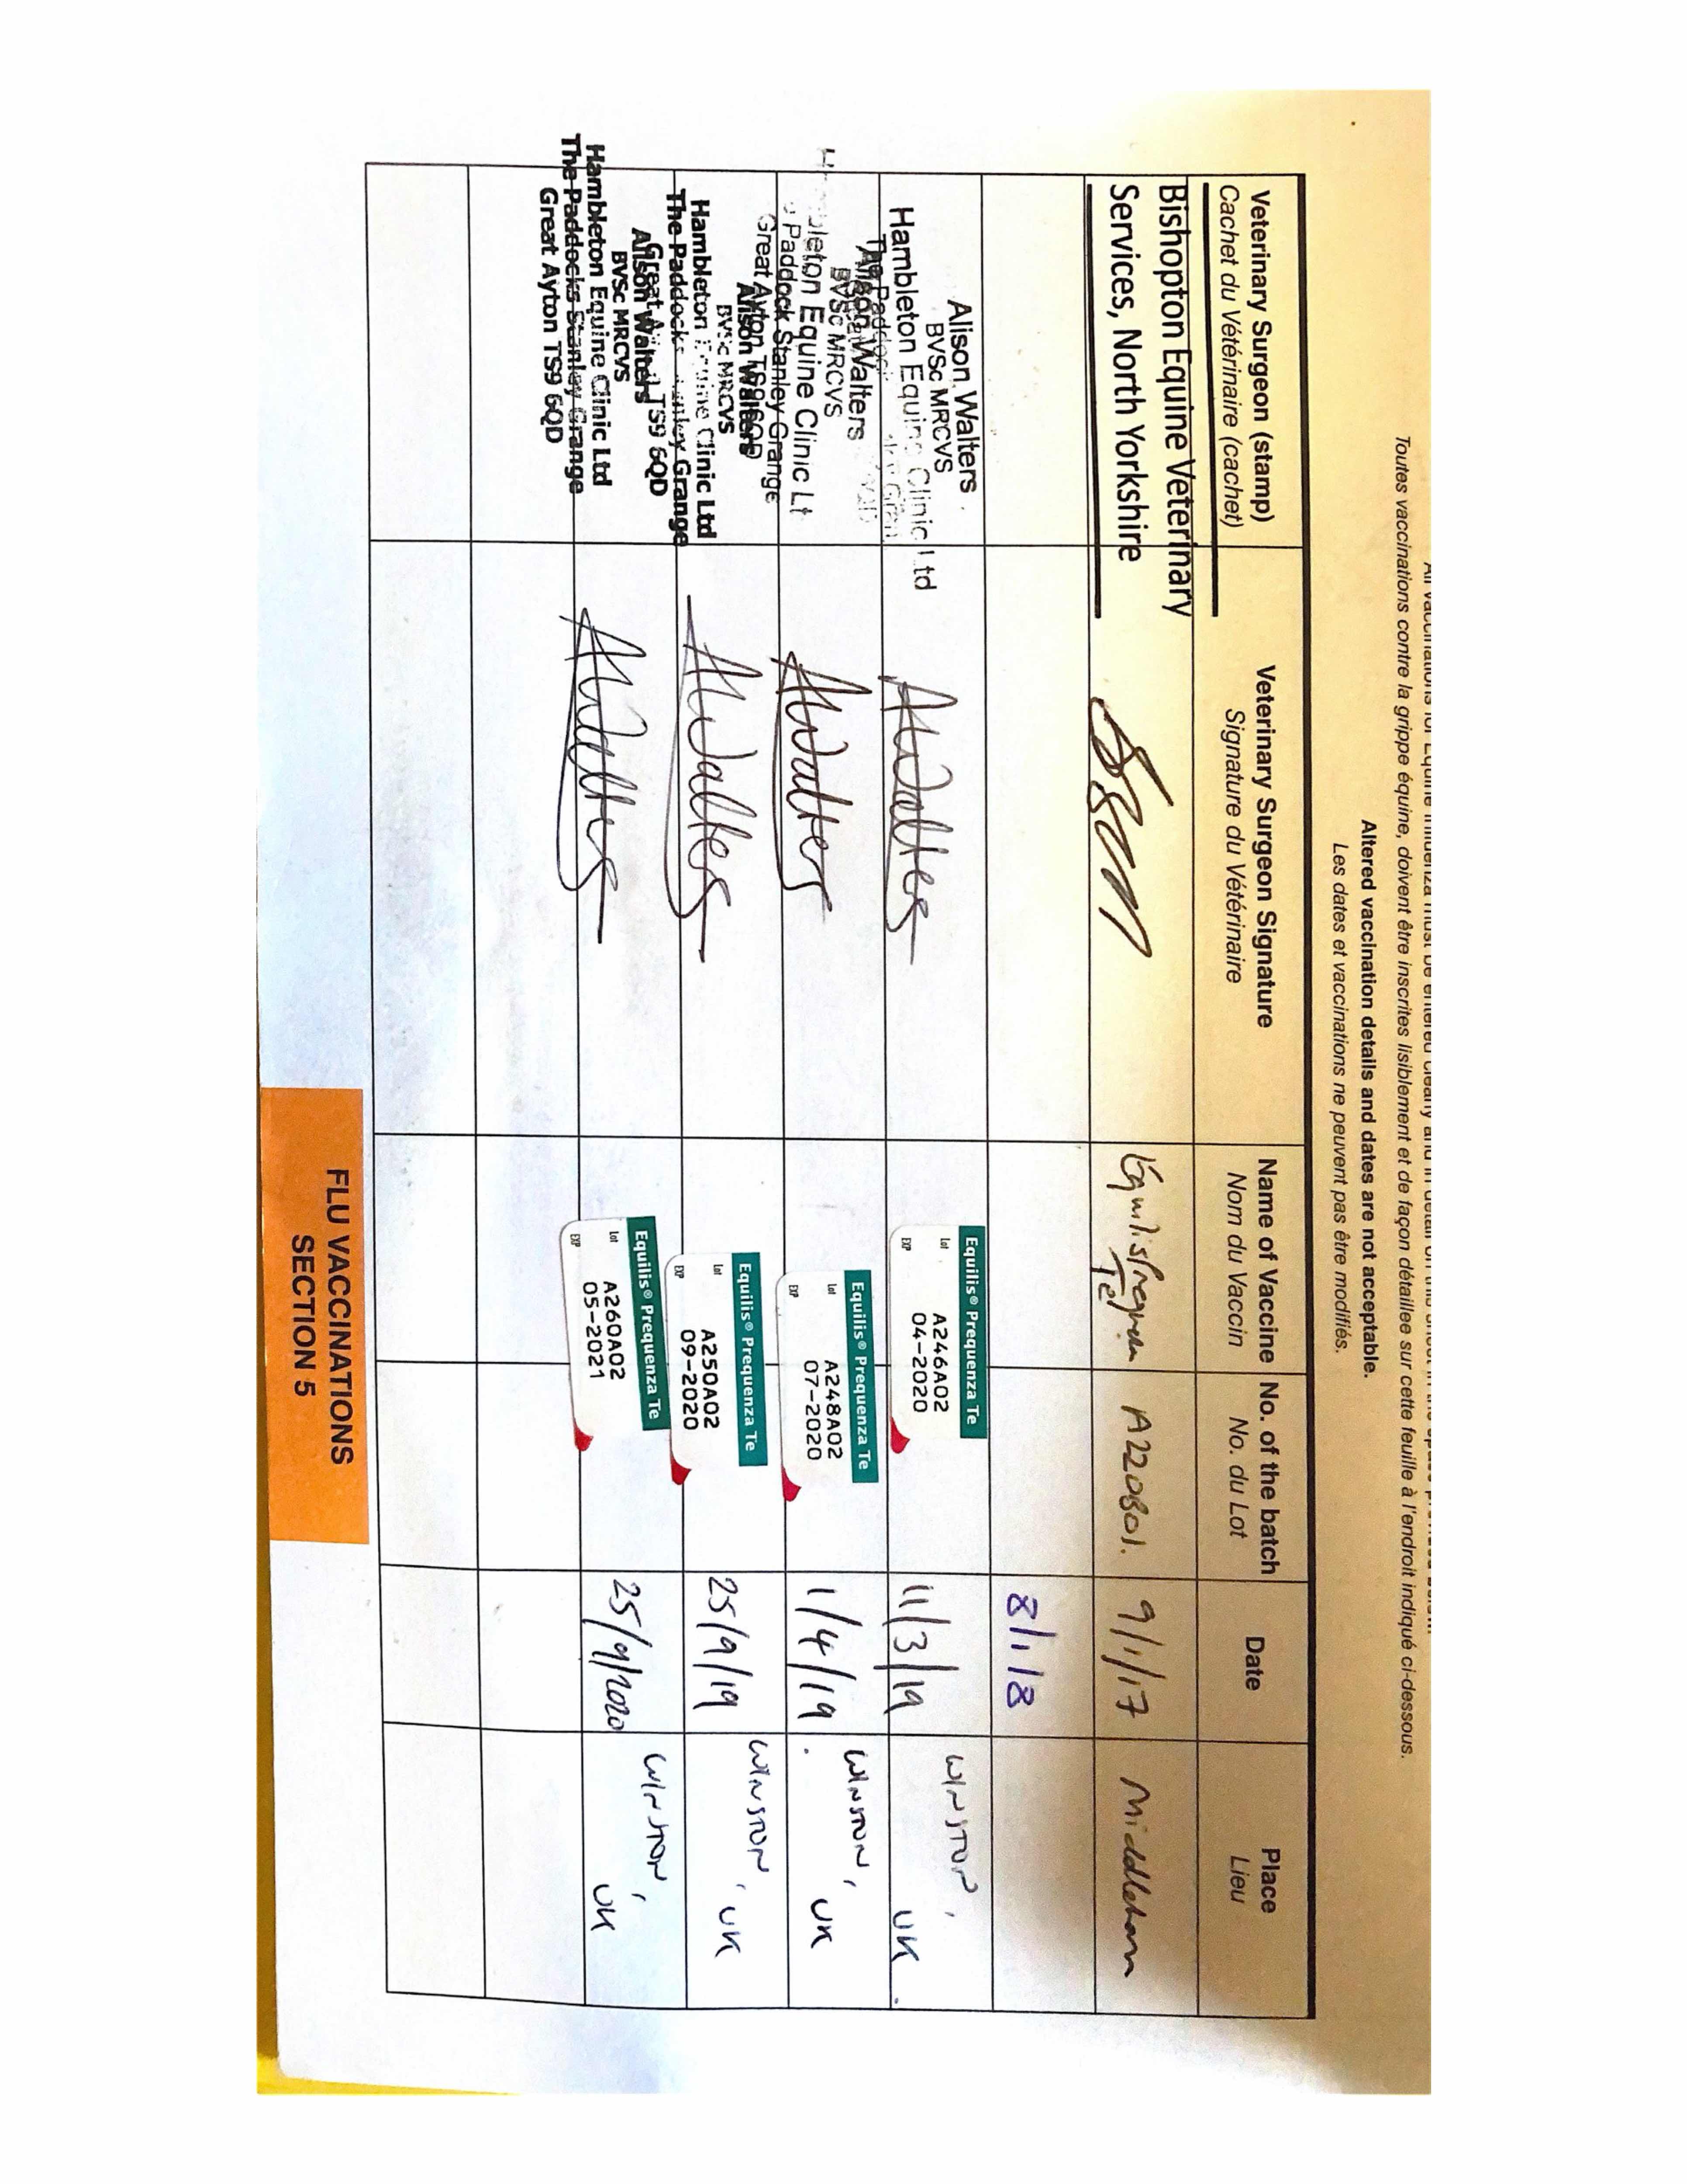 Toutes vaccinations contre la grippe équine, doivent être inscrites lisiblement et de façon détaillee sur cette feuille à l'endroit indiqué ci-dessous.
Altered vaccination details and dates are not acceptable.
Les dates et vaccinations ne peuvent pas être modifiés.
Veterinary Surgeon (stamp) Veterinary Surgeon Signature Name of Vaccine No. of the batch Date Place
Cachet du Vétérinaire (cachet) Signature du Vétérinaire Nom du Vaccin No. du Lot Lieu
Bishopton Equine Veterinary
Services, North Yorkshire
Equilis Te A220B01. 9/1/17 Middleham
8/1/18
Alison Walters
BVSc MRCVS
Hambleton Equine Clinic Ltd
AWalters
Equilis® Prequenza Te
Lot A246A02
EXP 04-2020
11/3/19
WINSTON, UK.
Alison Walters
BVSc MRCVS
Equine Clinic Lt
Paddock Stanley Grange
Great Ayton TS9 6QD
AWalters
Equilis® Prequenza Te
Lot A248A02
EXP 07-2020
1/4/19
WINSTON, UK
Alison Walters
BVSc MRCVS
Hambleton Equine Clinic Ltd
The Paddocks Stanley Grange
TS9 6QD
AWalters
Equilis® Prequenza Te
Lot A250A02
EXP 09-2020
25/9/19
WINSTON, UK
Alison Walters
BVSc MRCVS
Hambleton Equine Clinic Ltd
The Paddocks Stanley Grange
Great Ayton TS9 6QD
AWalters
Equilis® Prequenza Te
Lot A260A02
EXP 05-2021
25/9/2020
WINSTON, UK
FLU VACCINATIONS
SECTION 5